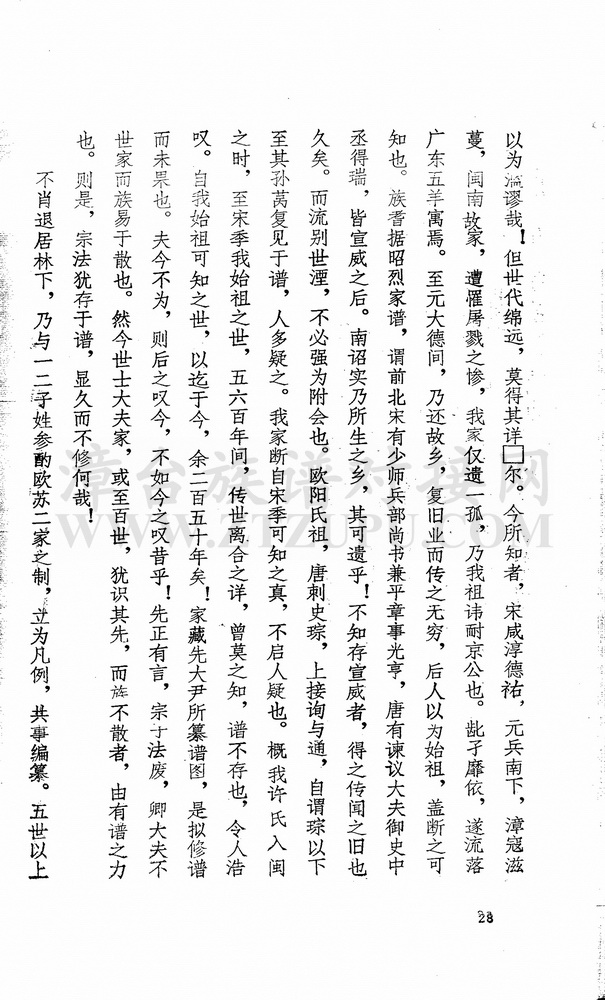 以为滥谬哉！但世代绵远，莫得其详□尔。今所知者，宋咸淳德祐，元兵南下，漳寇滋
蔓，闽南故家，遭罹屠戮之惨，我家仅遗一孤，乃我祖讳耐京公也。龀孑靡依，遂流落
广东五羊寓焉。至元大德间，乃还故乡，复旧业而传之无穷，后人以为始祖，盖断之可
知也。族耆据昭烈家谱，谓前北宋有少师兵部尚书兼平章事光亨，唐有谏议大夫御史中
丞得瑞，皆宣威之后。南诏实乃所生之乡，其可遗乎！不知存宣威者，得之传闻之旧也
久矣。而流别世湮，不必强为附会也。欧阳氏祖，唐刺史琮，上接询与通，自谓琮以下
至其孙莴复见于谱，人多疑之。我家断自宋季可知之真，不启人疑也。概我许氏入闽
之时，至宋季我始祖之世，五六百年间，传世离合之详，曾莫之知，谱不存也，令人浩
叹。自我始祖可知之世，以迄于今，余二百五十年矣！家藏先大尹所纂谱图，是拟修谱
而未果也。夫今不为，则后之叹今，不如今之叹昔乎！先正有言，宗子法废，卿大夫不
世家而族易于散也。然今世士大夫家，或至百世，犹识其先，而族不散者，由有谱之力
也。则是，宗法犹存于谱，显久而不修何哉！
不肖退居林下，乃与一二子姓参酌欧苏二家之制，立为凡例，共事编纂。五世以上
28
漳台族谱对接网
WWW.ZTZUPU.COM